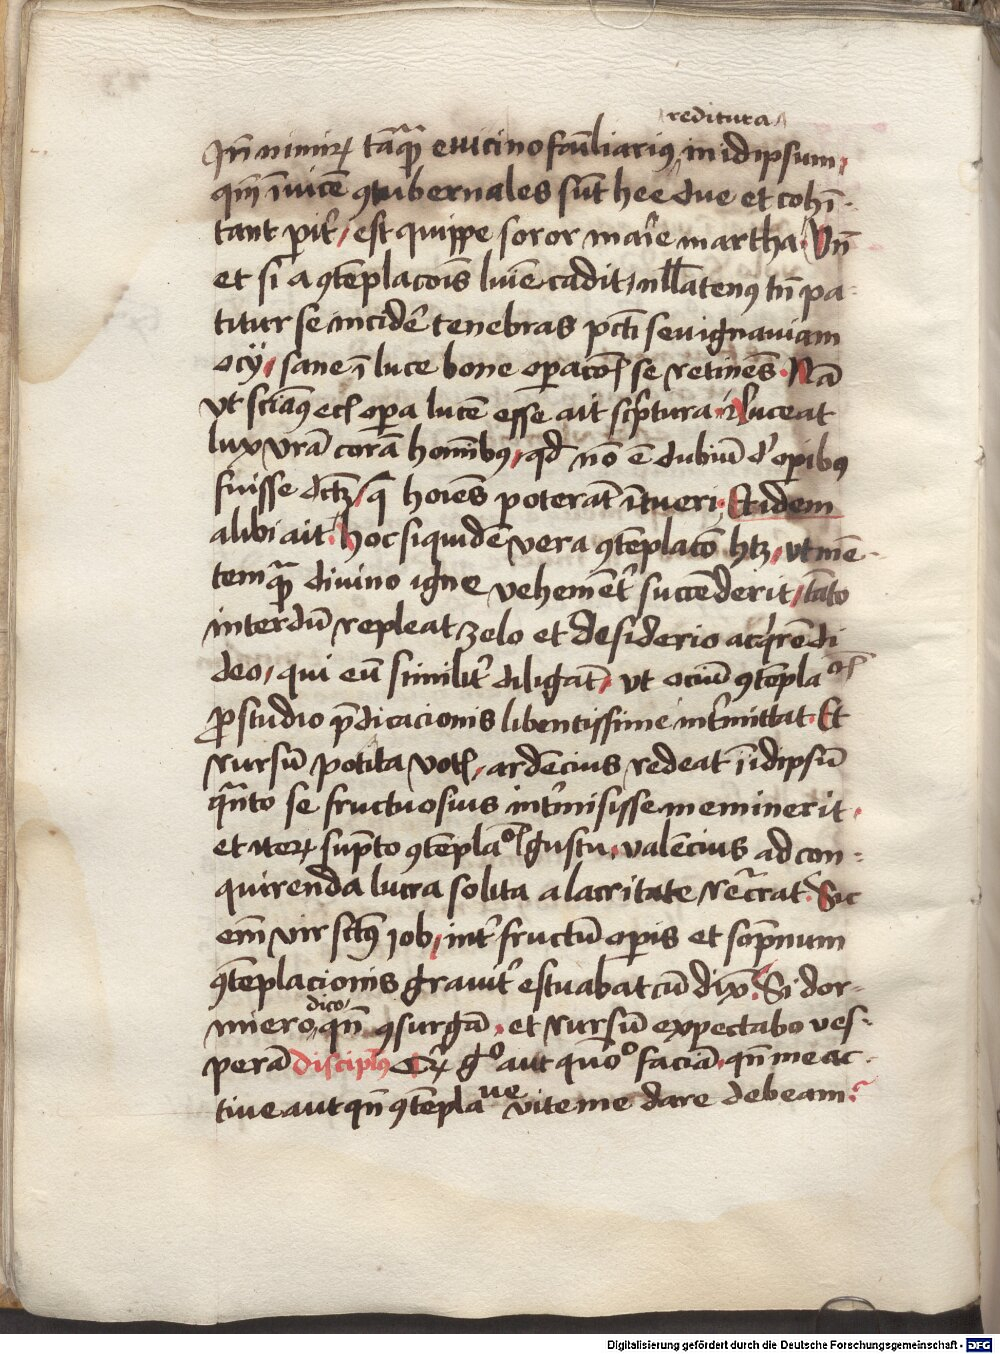 reditura
Jn̄ nimiꝝ tāqͣꝫ e uicino fāiliariꝰ, in idipsum,
qm̄ īuicē ꝯtubernales sūt hee due et cohi-
tant pit᷑, est quippe soror marīe martha. Vn̄
et si a ꝯteplacōis lumīe cadit, nll̄atenꝰ tn̄ pa-
titur se incidē tenebras pctī seu ignauiam
ocij, sane ī luce bone oꝑacōīs se retinēs. Nā
vt sciatꝰ ecī oꝑa lucē esse ait scptura. luceat
lux vr̄a corā hoībꝰ, qd nō ē dubiū d' oꝑibꝰ
fuisse dctꝫ, q̄ hoīes poterāt ītueri. Et idem
alibi ait. hoc siquidē vera ꝯteplacō hꝫ, vt mē-
temqͣꝫ diuino igne vehemēt᷑ succēderit, tāto
interdū repleat zelo et desiderio acqͥrēdi
deo, qui eū similit᷑ diligāt, vt ociū ꝯtepla oīs
ꝓ studio p̄dicacionis libentissime int᷑mittat. Et
rursū potita votī, ardēcius redeat ī idipsū
qͣnto se fructuosius int᷑misisse meminerit,
et iteꝝ sūpto ꝯtepla oīs gustu, valēcius ad con-
quirenda lucra solita alacritate recͣrat. Sic
em̄ vir sctꝰ job, int᷑ fructū oꝑis et sopnum
ꝯteplacionis grauit᷑ estuabat cū dix̄. Si dor-
dico
miero, qn̄ ꝯsurgā, et rursū expectabo ves-
perā discipulꝰ Cꝝ gͦ aut quōͦ faciā, qn̄ me ac-
tiue aut qn̄ ꝯtepla ue vite me dare debeam?
Digitalisierung gefördert durch die Deutsche Forschungsgemeinschaft - DFG